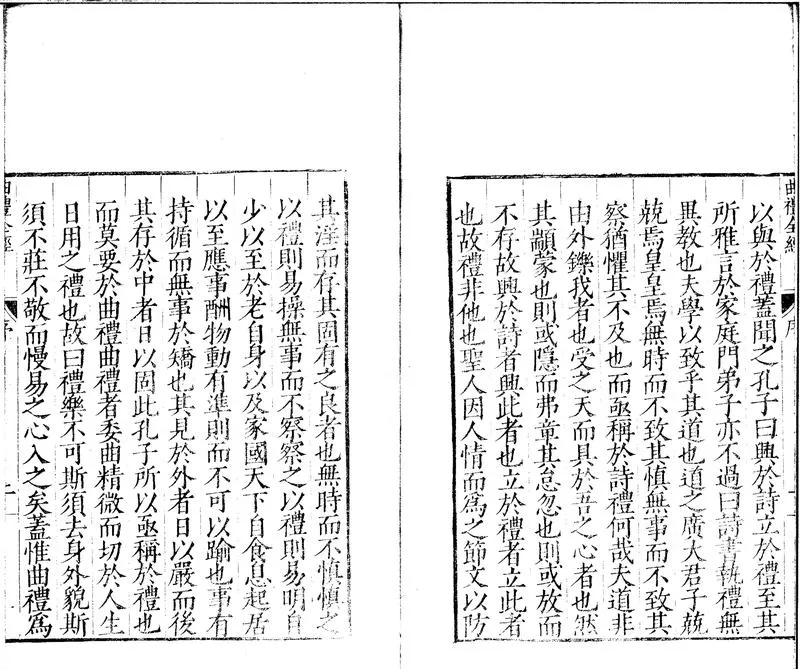 曲禮全經
序
以與於禮蓋聞之孔子曰興於詩立於禮至其
所雅言於家庭門弟子亦不過曰詩書執禮無
異教也夫學以致乎其道也道之廣大君子兢
兢焉皇皇焉無時而不致其慎無事而不致其
察猶懼其不及也而亟稱於詩禮何哉夫道非
由外鑠我者也受之天而具於吾之心者也然
其顓蒙也則或隱而弗章其怠忽也則或放而
不存故興於詩者興此者也立於禮者立此者
也故禮非他也聖人因人情而爲之節文以防
其淫而存其固有之良者也無時而不慎慎之
以禮則易操無事而不察察之以禮則易明自
少以至於老自身以及家國天下自食息起居
以至應事酬物動有準則而不可以踰也事有
持循而無事於矯也其見於外者日以嚴而後
其存於中者日以固此孔子所以亟稱於禮也
而莫要於曲禮曲禮者委曲精微而切於人生
日用之禮也故曰禮樂不可斯須去身外貌斯
須不莊不敬而慢易之心入之矣蓋惟曲禮爲
曲禮全經
序